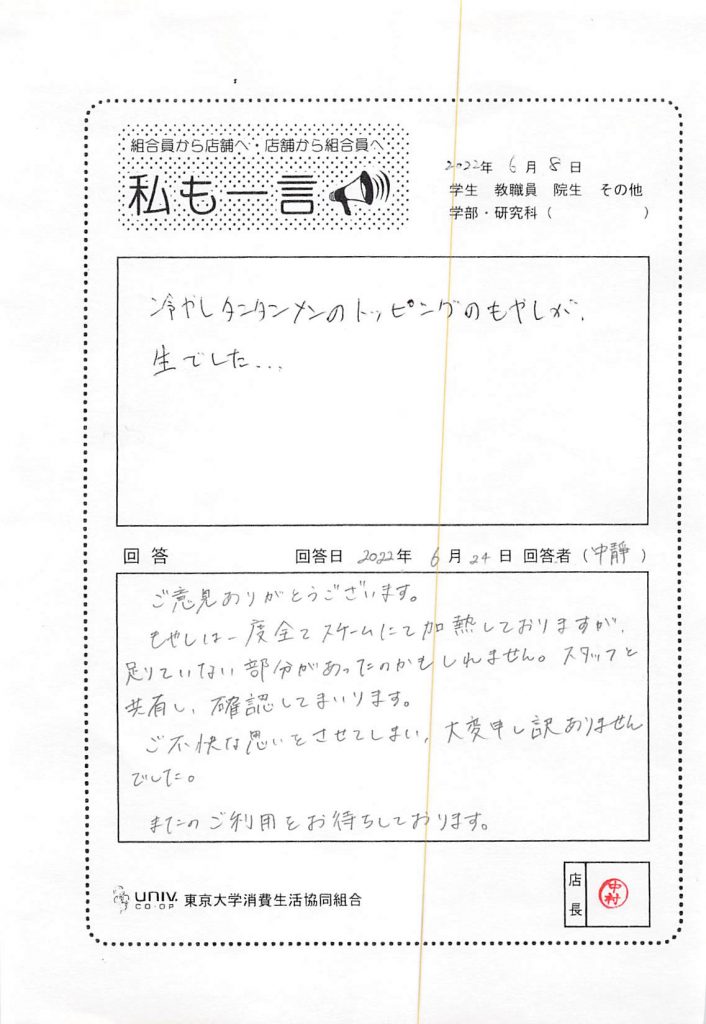 組合員から店舗へ・店舗から組合員へ
私も一言
2022年 6月 8日
学生 教職員 院生 その他
学部・研究科( )
冷やしタンタンメンのトッピングのもやしが、
生でした...
回答 回答日 2022年 6月24日 回答者(中靜)
ご意見ありがとうございます。
もやしは一度全てスチームにて加熱しておりますが、
足りていない部分があったのかもしれません。スタッフと
共有し、確認してまいります。
ご不快な思いをさせてしまい、大変申し訳ありません
でした。
またのご利用をお待ちしております。
UNIV.
CO-OP
東京大学消費生活協同組合
店長
中村